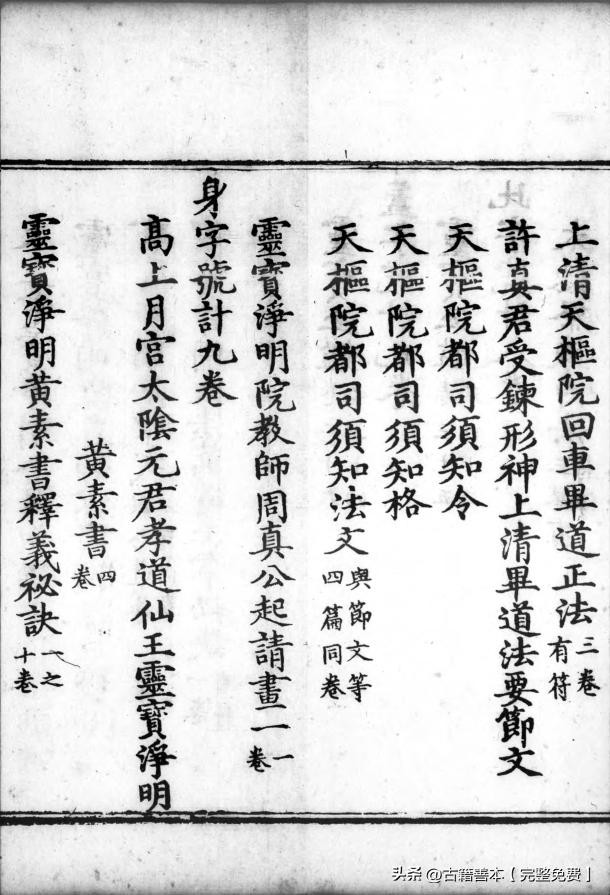 上清天樞院回車畢道正法三卷有符
許真君受鍊形神上清畢道法要節文
天樞院都司須知令
天樞院都司須知格
天樞院都司須知法文與節文等四篇同卷
靈寶淨明院教師周真公起請畫二一卷
身字號計九卷
高上月宮太陰元君孝道仙王靈寶淨明
黃素書四卷
靈寶淨明黃素書釋義祕訣
头条 @古籍善本【完整免费】